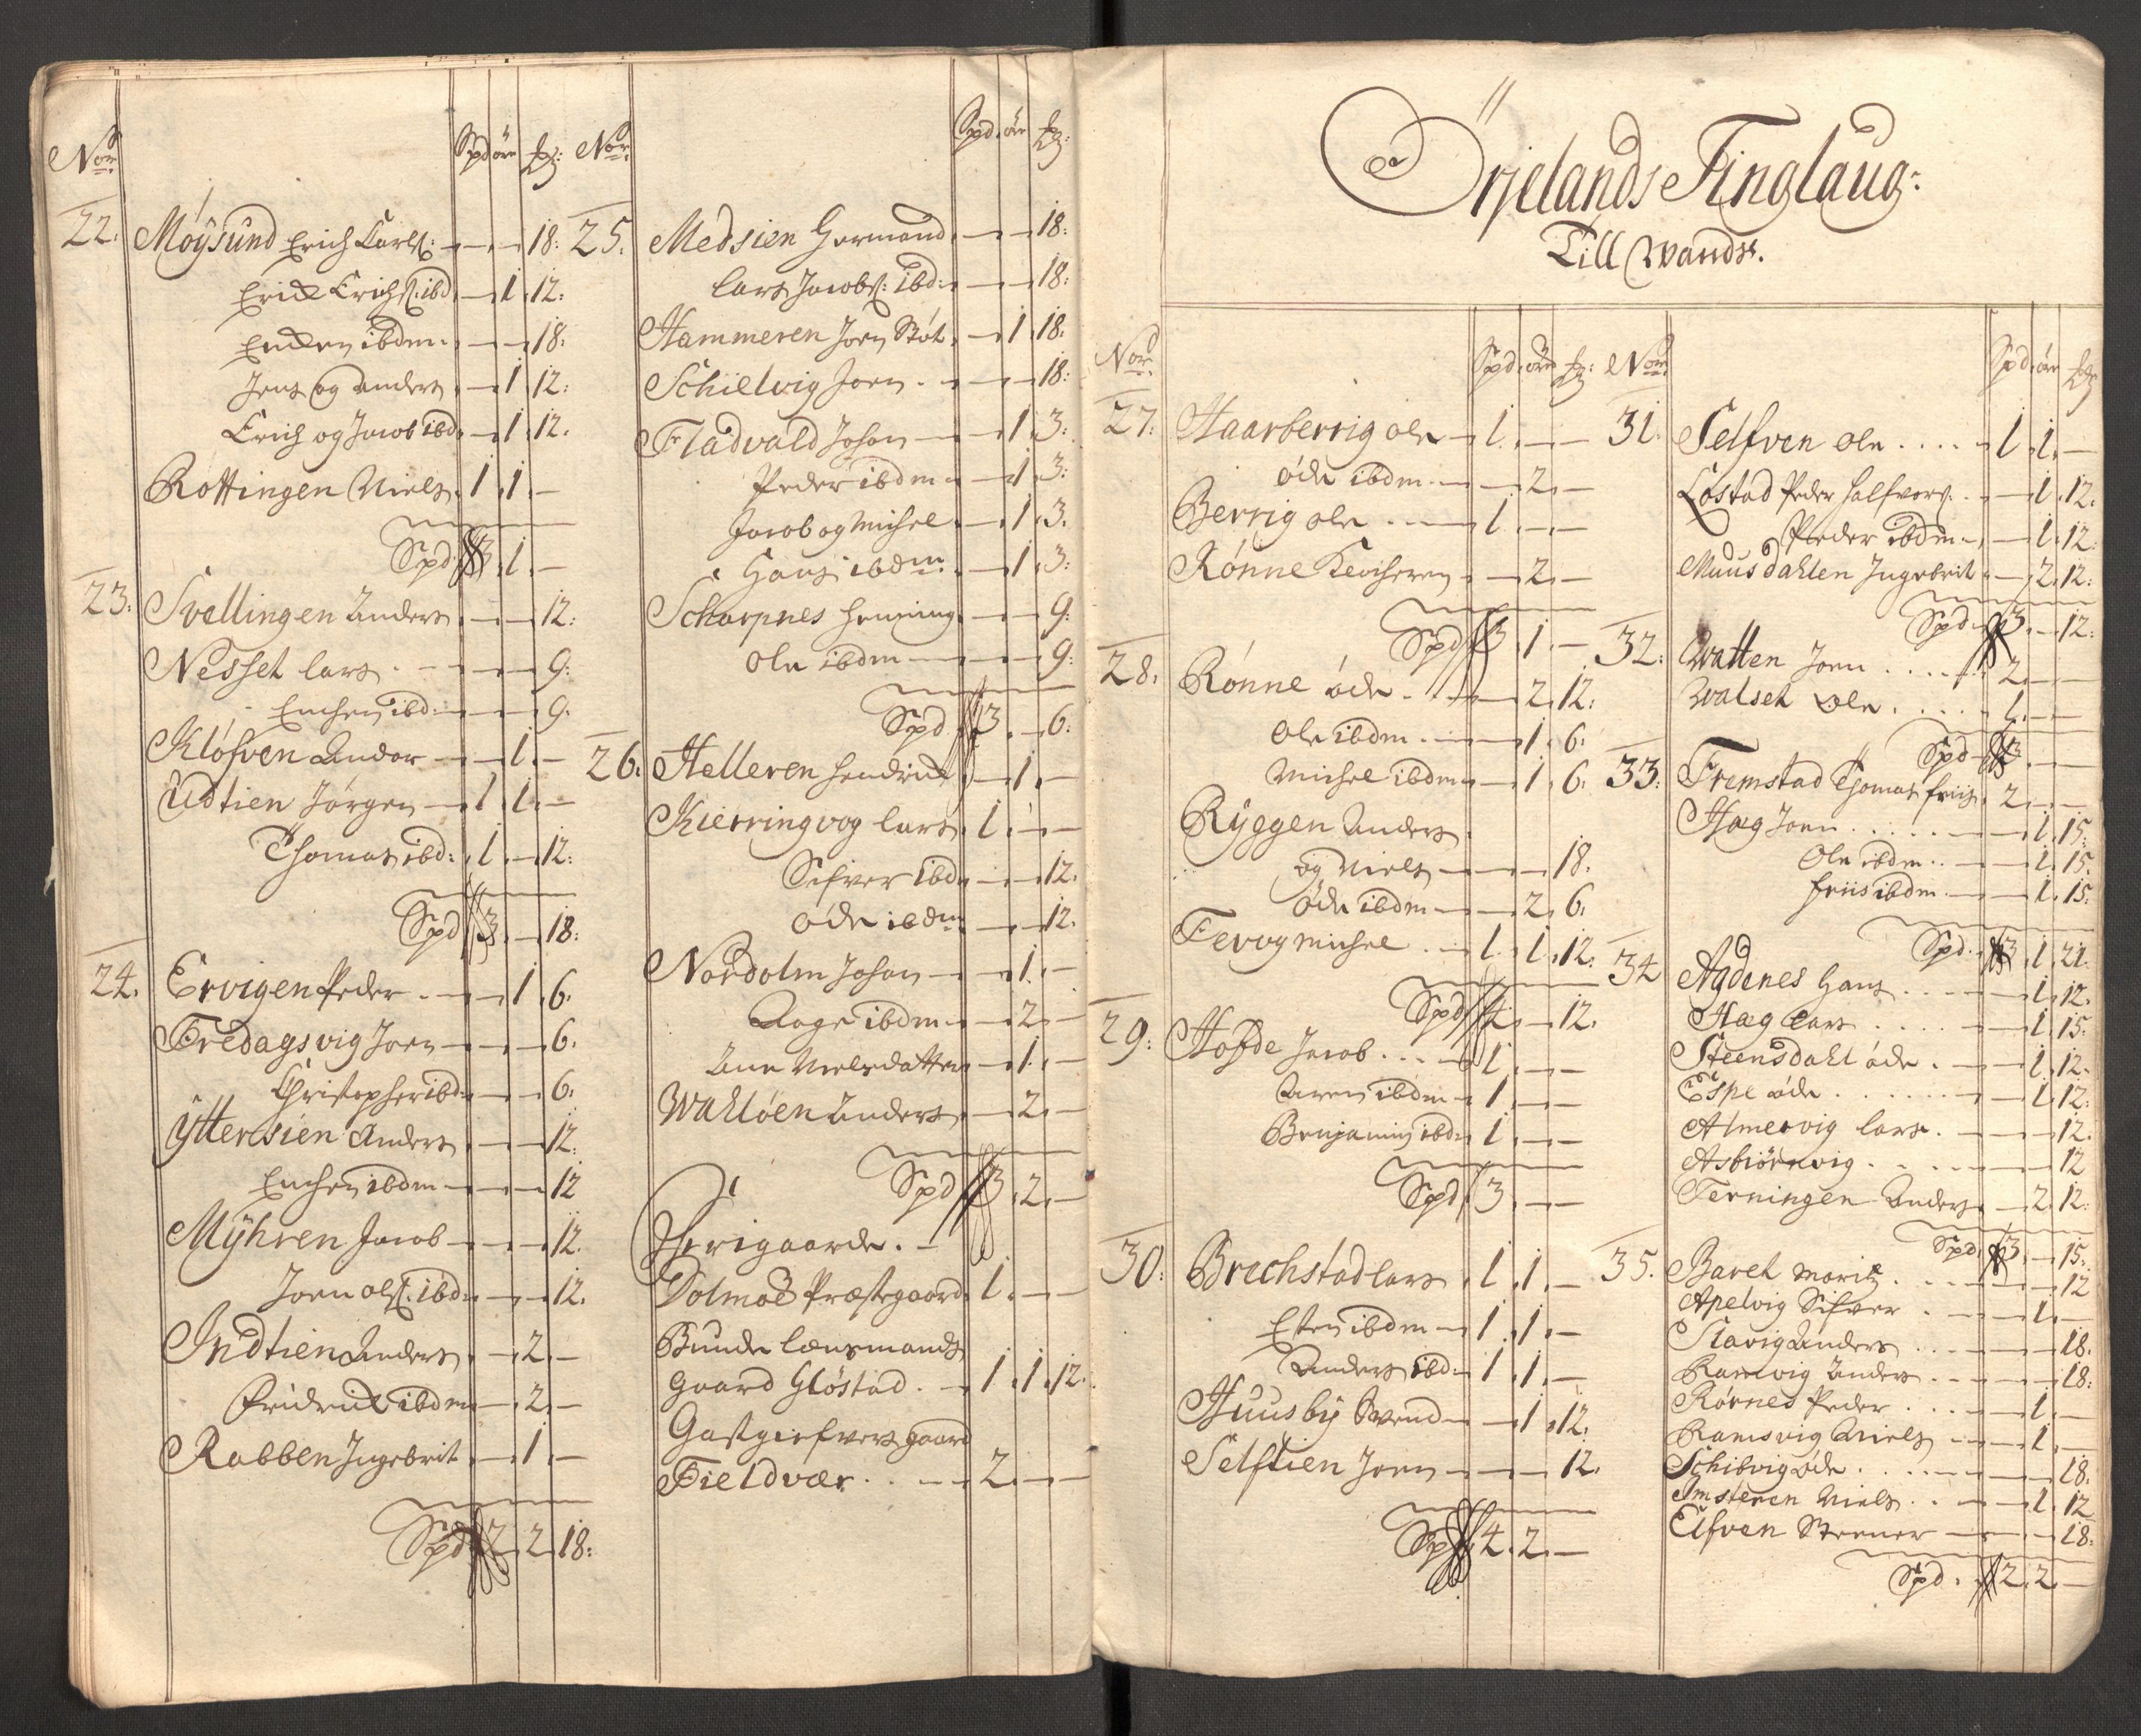 Nor. Spd ör ₰:
22. Möysund Erich Carls: — — 18:
Erich Erichs: ibd — 1. 12:
Encken ibdm. — — 18.
Jens og Anders — 1. 12:
Erich og Jacob ibd — 1. 12.
Rottingen Niels. 1. 1. —
Spd 3. 1. —
23. Svellingen Anders. — — 12:
Nesset lars. — — 9:
Enchen ibd: — — 9.
Klöfven Anders — 1. —
Udtien Jörgen — 1. 1. —
Thomas ibd: 1. — 12:
Spd 3. — 18:
24. Ervigen Peder. — 1. 6.
Fredagsvig Joen — — 6.
Christopher ibd: — — 6.
Ytterösien Anders — — 12.
Enchen ibdm — — 12
Myhren Jacob — — 12.
Joen Ols: ibd: — — 12.
Indtien Anders. — 2. —
Fridrich ibdm — 2. —
Rabben Ingebrit. — 1. —
Spd 2. 2. 18:
Nor. Spd. ör ₰:
25. Medsien Gormand. — — 18:
lars Jacobs: ibd: — — 18:
Hammeren Joen — 1. 18:
Schielvig Joen. — — 18:
Fladvald Johan — — 1. 3:
Peder ibdm — 1. 3:
Jacob og Michel — 1. 3.
Hans ibdm — 1. 3:
Scharpnes Henning — — 9:
Ole ibdm — — 9:
Spd 3. — 6:
26. Helleren Hendrich — 1. —
Kierringvog lars. 1. — —
Sifver ibd: — — 12.
öde ibdm — — 12.
Nordolm Johan — 1. —
Aage ibdm — 2. —
Ane Nielsdatter — 1. —
Wahlöen Anders — 2. —
Spd 3. 2. —
Frigaarde. —
Dolmöe Præstegaard. 1. — —
Bunde Lensmands
gaard Glöstad. — 1. 1. 12.
Gastgiefvers gaard
Fieldvær. — 2. — —
Örjelands Tinglaug:
Till Wands.
Nor. Spd. ör ₰:
27. Haarberrig Ole — 1. — —
öde ibdm. — 2. —
Berrig Ole — 1. — —
Rönne — 2. —
Spd 3. 1. —
28. Rönne öde. — 2. 12:
Ole ibdm. — 1. 6:
Michel ibdm — 1. 6.
Ryggen Anders
og Niels — — 18.
öde ibdm — 2. 6.
Fevog Michel. — 1. 1. 12.
Spd 2. — 12.
29: Hofde Jacob. — 1. — —
Aren ibdm — 1. — —
Benjamin ibd: 1. — —
Spd 3. — —
30: Brechstad lars. 1. 1. —
Esten ibdm — 1. 1. —
Anders ibd: 1. 1. —
Huusby Svend — 1. 12.
Selftien Joen — — 12.
Spd 4. 2. —
Nor. Spd. ör ₰
31. Selfven Ole. . . . 1. 1. —
Lostad Peder Halfvors. — 1. 12.
Peder ibdm. — 1. 12:
Muusdahlen Ingebrit — 2. 12:
Spd 3. — 12:
32: Watten Joen. . . . 2. — —
Walset Ole. . . . 1. — —
Spd 3. — —
33: Fremstad Thomas Friis. 2. — —
Hæg Joen. . . . . — 1. 15.
Ole ibdm. . — 1. 15.
Friis ibdm. — 1. 15.
Spd. 3. 1. 21.
34 Agdenes Hans. . . — 1. 12.
Hæg Lars. . . . — 1. 15:
Steensdahl öde. — 1. 12.
Espe öde. . . . . — 1. 12:
Almervig lars. — — 12.
Asbiörnvig. . — — 12
Terningen Anders. — 2. 12:
Spd. 3. — 15.
35. Baret Moritz. — — 12
Apelvig Sifver. — 1. —
Slavig Anders. . . — — 18.
Ramvig Anders. — — 18:
Rörnes Peder. . . — 1. —
Ramsvig Niels — 1. —
Schibvig öde. . . . — — 18.
Imsteren Niels. . — 1. 12
Elfven — — 18:
Spd. 2. 2. —